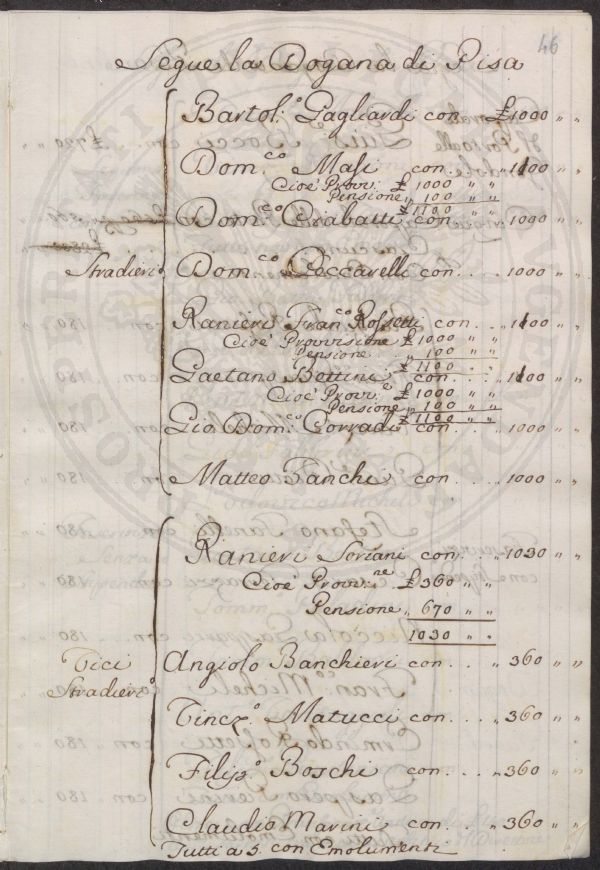 46
Segue la Dogana di Pisa
Bartol:º Gagliardi con £ 1000 " "
Dom:co Masi con . . " 1100 " "
Cioè Prov: £ 1000 " "
Pensione " 100 " "
£ 1100 " "
Dom:co Ciabatti con . . " 1000 " "
Stradieri
Dom:co Ceccarelli con . . . " 1000 " "
Ranieri Fran:co Rossetti con . . " 1100 " "
Cioè Provvisione £ 1000 " "
Pensione . . " 100 " "
£ 1100 " "
Gaetano Bettini con . . . " 1100 " "
Cioè Provv:e £ 1000 " "
Pensione " 100 " "
£ 1100 " "
Gio Dom:co Corradi con . . . " 1000 " "
Matteo Fanchi con . . . " 1000 " "
Ranieri Soriani con . . " 1030 " "
Cioè Provv:ne £ 360 " "
Pensione " 670 " "
1030 " "
Tici
Stradieri
Angiolo Banchieri con . . . " 360 " "
Matucci con . . . " 360 " "
Filip:º Boschi con . . . " 360 " "
Claudio Marini con . . . " 360 " "
Tutti a 5. con Emolumenti